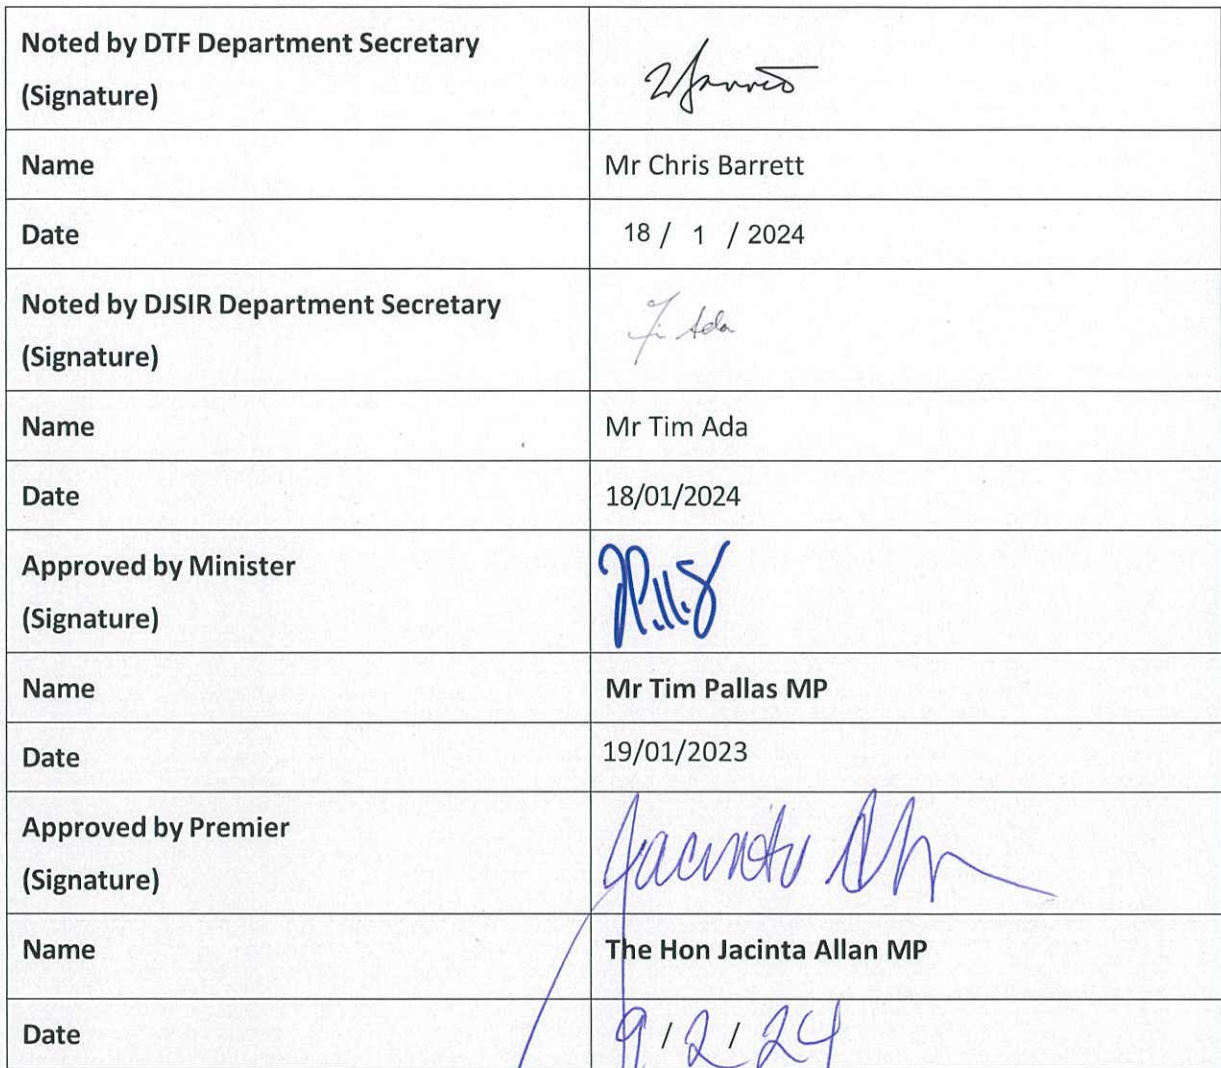 Noted by DTF Department Secretary
(Signature)
Name
Mr Chris Barrett
Date
18 / 1 / 2024
Noted by DJSIR Department Secretary
(Signature)
Ti Ada
Name
Mr Tim Ada
Date
18/01/2024
Approved by Minister
(Signature)
Name
Mr Tim Pallas MP
Date
19/01/2023
Approved by Premier
(Signature)
Jacinta
Name
The Hon Jacinta Allan MP
Date
9/2/24